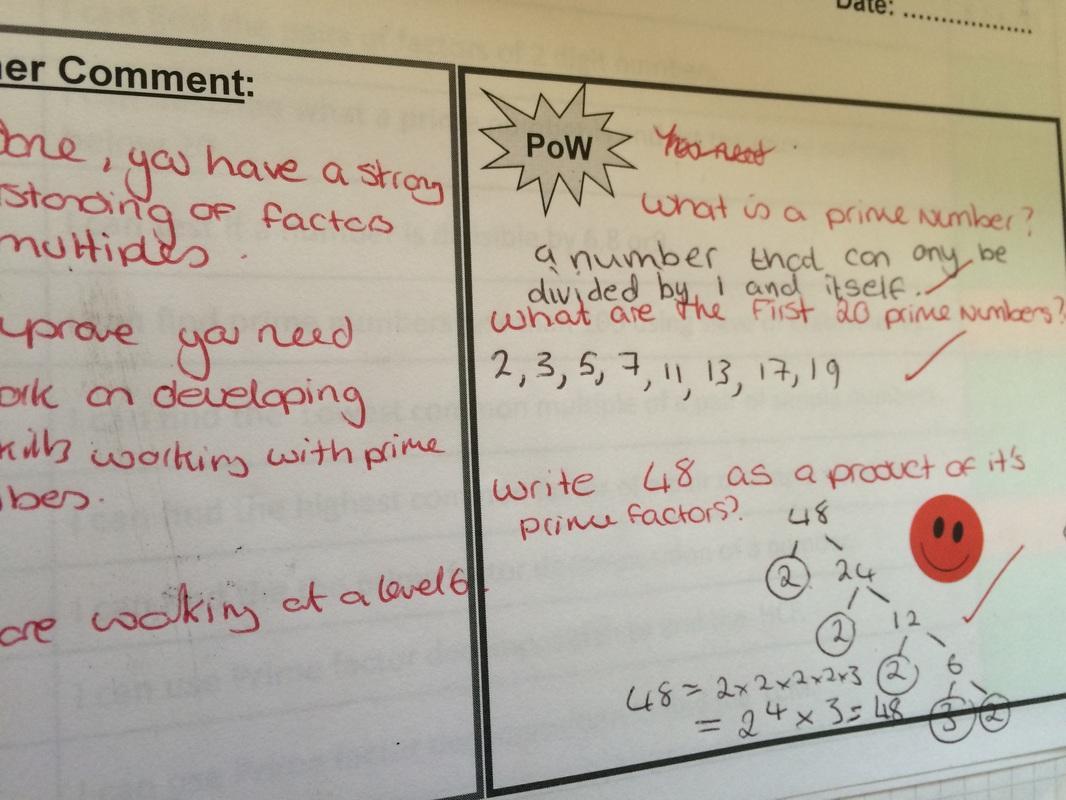 Date: ..................
er Comment:
one, you have a strong
standing of factors
multiples.
uprove you need
ork on developing
kills working with prime
bes.
are working at a level 6.
PoW
What is a prime number?
a number that can only be
divided by 1 and itself.
What are the First 20 prime numbers?
2, 3, 5, 7, 11, 13, 17, 19
Write 48 as a product of it's
prime factors?
48
2 24
2 12
2 6
3 2
48 = 2×2×2×2×3
= 2⁴ × 3 = 48